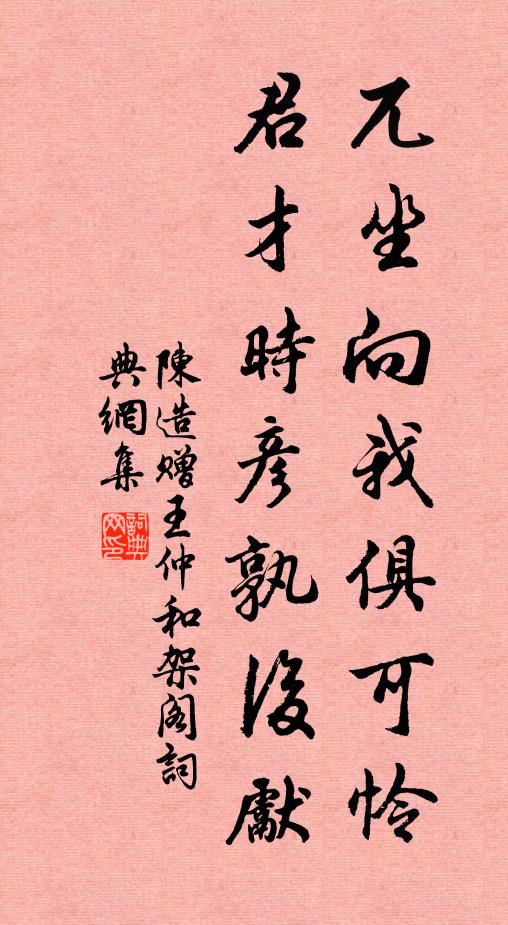 兀坐向我俱可怜
君才時彦孰後獻
陳造贈王仲和架阁詞
典網集
詞典網印